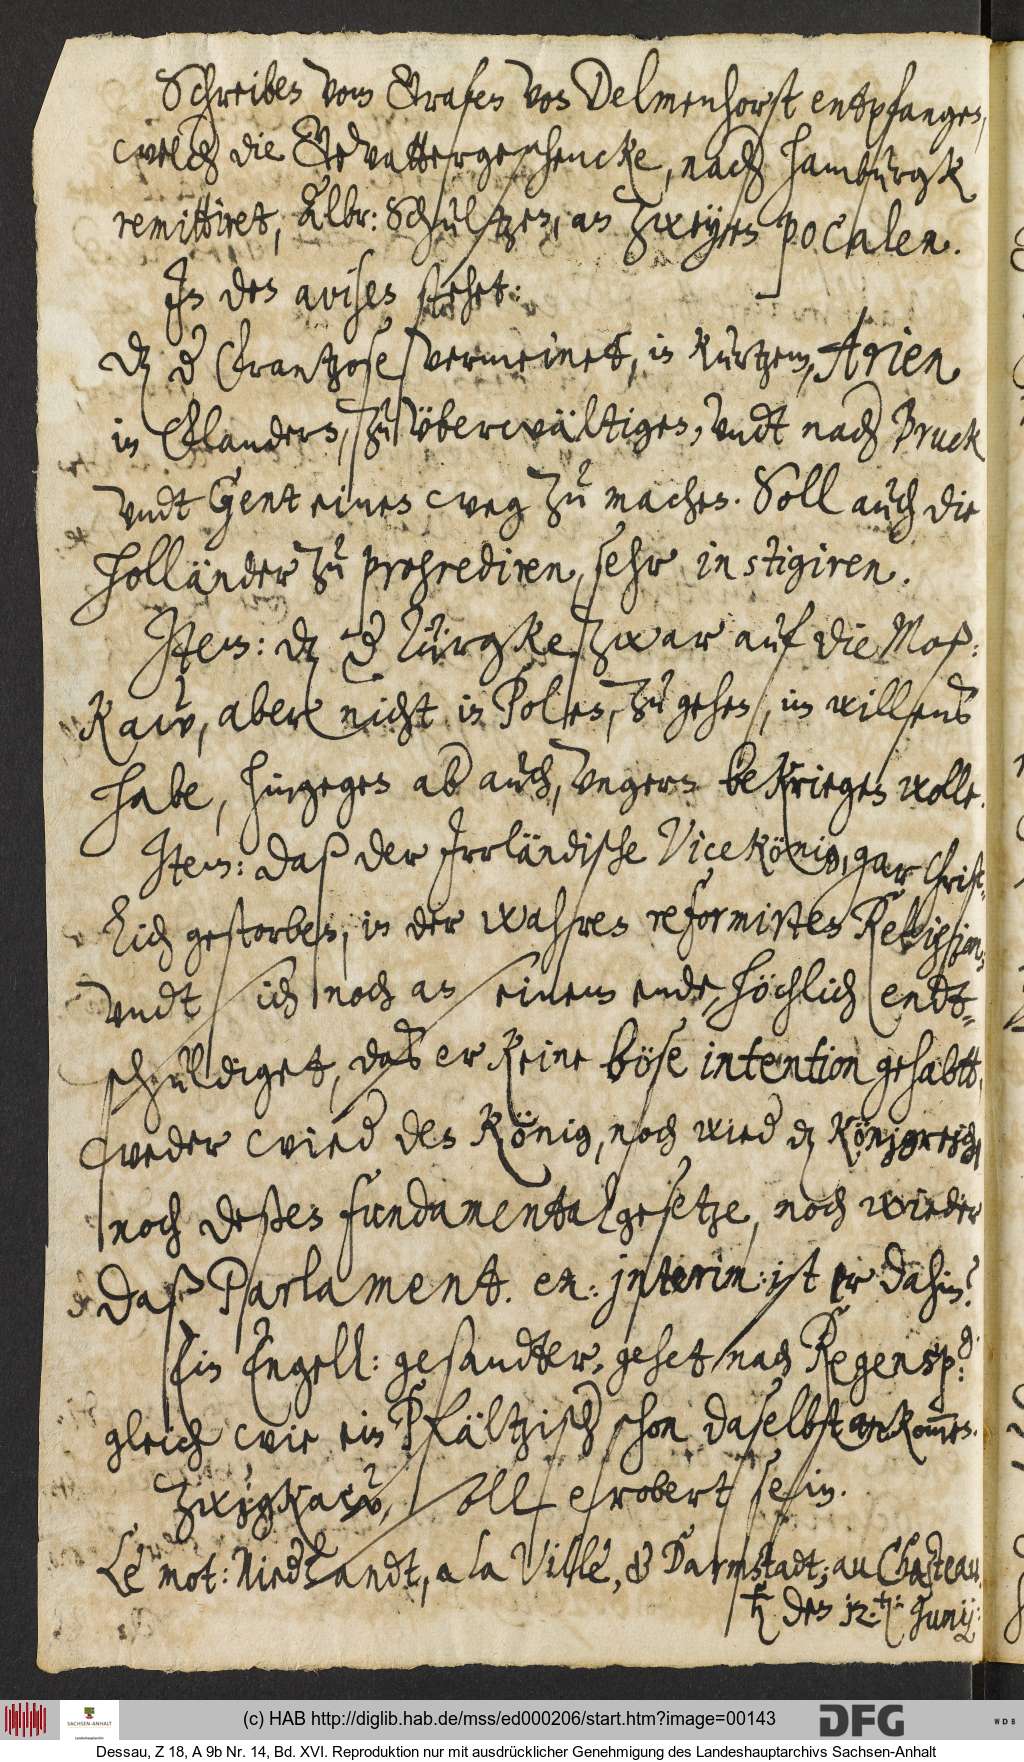 Schreiben vom Grafen von Delmenhorst entpfangen,
welch die Gevattergeschencke, nach Hamburgk
remittiret, Albr: Schultzen, an zweyen pocalen.
In den avisen stehet:
dz d Frantzose vermeinet, in kurtzem, Arien
in Flandern, zu überwältigen, undt nach Bruck
undt Gent einen weg zu machen. Soll auch die
Holländer zu prohrediren, sehr instigiren.
Item: dz d Türgke zwar auf die Moß=
kaw, aber nicht in Polen, zu gehen, im willens
habe, hingegen ab auch, Ungern bekriegen wolle.
Item: daß der Irrländische Vicekönig, gar Christ=
lich gestorben, in der wahren reformirten Religion,
undt sich noch an seinem ende, höchlich endt=
schuldiget, daß er keine böse intention gehabtt,
weder wied den König, noch wied dz Königreich
noch deßen fundamentalgesetze, noch wieder
daß Parlament. en: interim: ist er dahin.
Ein Engell: gesandter, gehet nach Regensp: g.
gleich wie ein Pfältzisch schon daselbst ankommen.
Zwygkaw, soll erobert sein.
Le mot: Niedlandt, a la Ville, & Darmstadt; au Chasteau.
♄ den 12.ten: Junij:
(c) HAB http://diglib.hab.de/mss/ed000206/start.htm?image=00143
SACHSEN-ANHALT
DFG
WDB
Dessau, Z 18, A 9b Nr. 14, Bd. XVI. Reproduktion nur mit ausdrücklicher Genehmigung des Landeshauptarchivs Sachsen-Anhalt